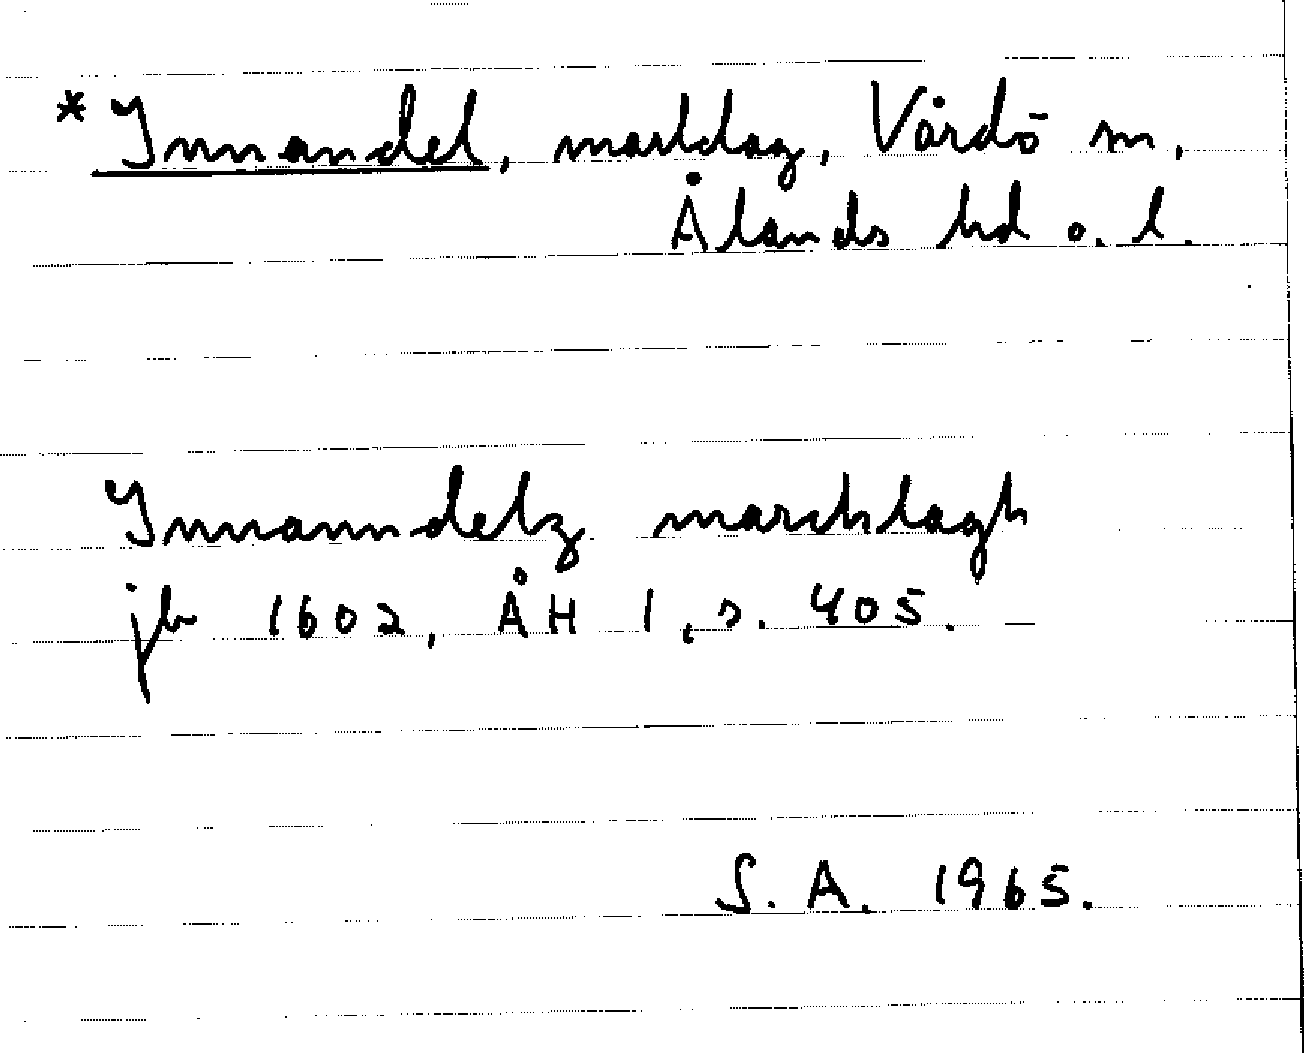 * Innandel, marklag, Vårdö sn,
Ålands hd o. l.
Innanndelz marcklagh
jb 1602, ÅH 1, s. 405.
S. A. 1965.